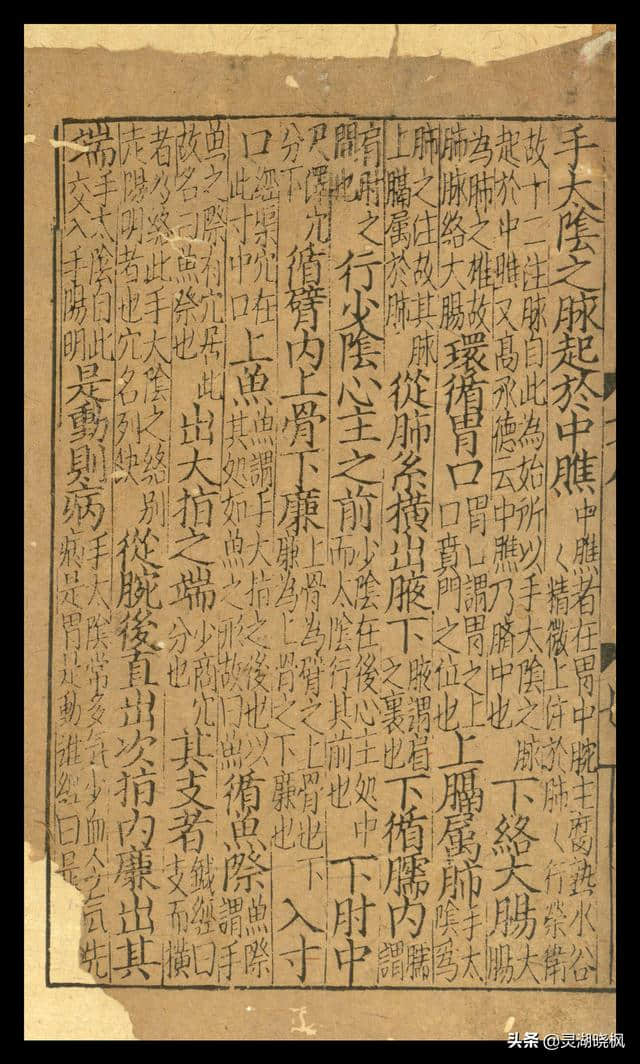 手太陰之脉起於中膲中膲者在胃中脘主腐熟水谷〻精微上注於肺〻行榮衛
故十二注脉自此為始所以手太陰之脉起於中膲又髙承德云中膲乃臍中也下絡大腸大腸
為肺之雄故肺脉絡大腸環循胃口胃口謂胃之上口賁門之位也上膈属肺手太陰爲
肺之注故其脉上膈属於肺從肺系横出腋下腋謂肩之裏也下循臑内臑謂
肩肘之間也行少陰心主之前少陰在後心主処中而太陰行其前也下肘中
尺澤穴分下循臂内上骨下廉上骨為臂之上骨也下廉為上骨之下廉也入寸
口經渠穴在此寸中口上魚魚謂手大拍之後也以其処如魚之形故曰魚循魚際魚際謂手
魚之際有穴居此故名曰魚祭也出大拍之端少商穴分也其支者鍼經曰支而横
者乃终此手太陰之絡别走陽明者也穴名列缺從腕後直出次拍内廉出其
端手太陰自此交入手陽明是動則病手太陰常多氣少血今氣先是胃是動難經曰是
头条 @灵湖晓枫